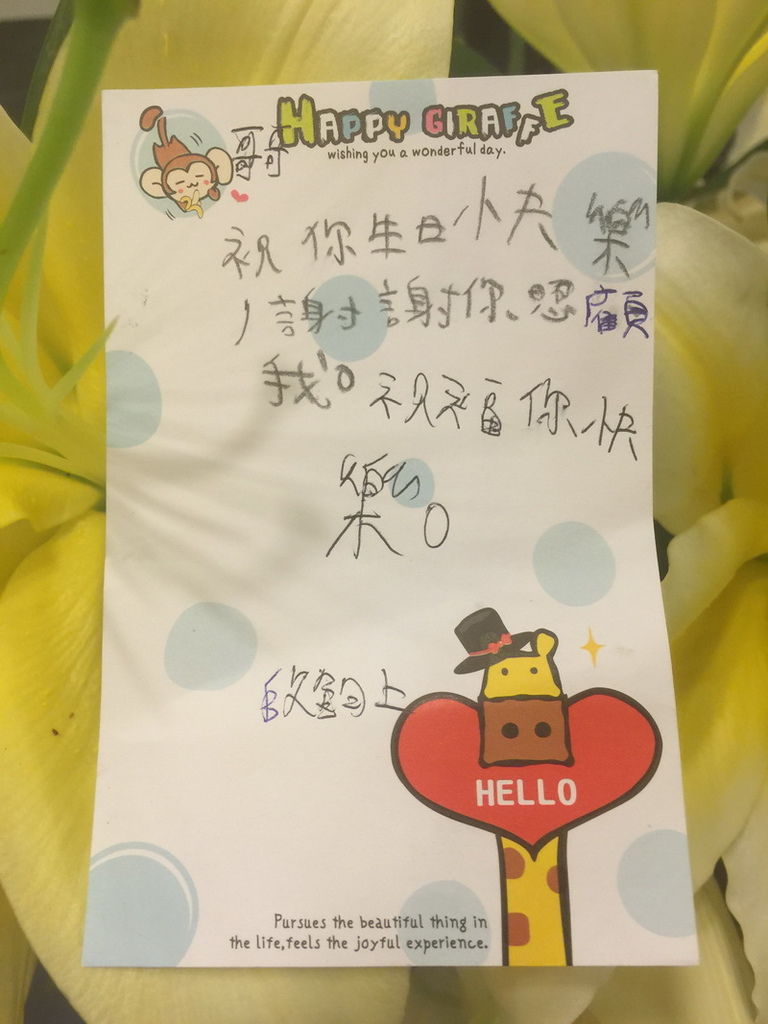 HAPPY GIRAFFE
wishing you a wonderful day.
哥哥
祝你生日快樂
,謝謝你、照顧
我。祝福你快
樂。
上
HELLO
Pursues the beautiful thing in
the life,feels the joyful experience.